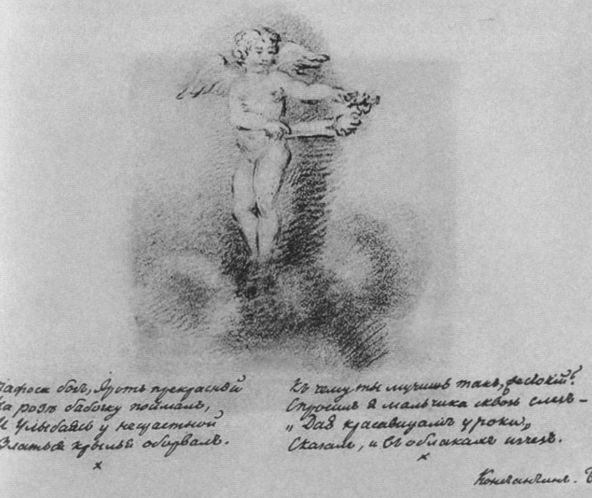 Пафоса богъ, Эротъ прекрасной
На розѣ бабочку поймалъ,
И улыбаясь у нещастной
Златыя крылья оборвалъ.
х
Къ чему ты мучишь такъ, жестокій?
Спросилъ я мальчика сквозь слезъ –
„Даю красавицамъ уроки„
Сказалъ, и въ облакахъ изчезъ.
х
Константинъ.